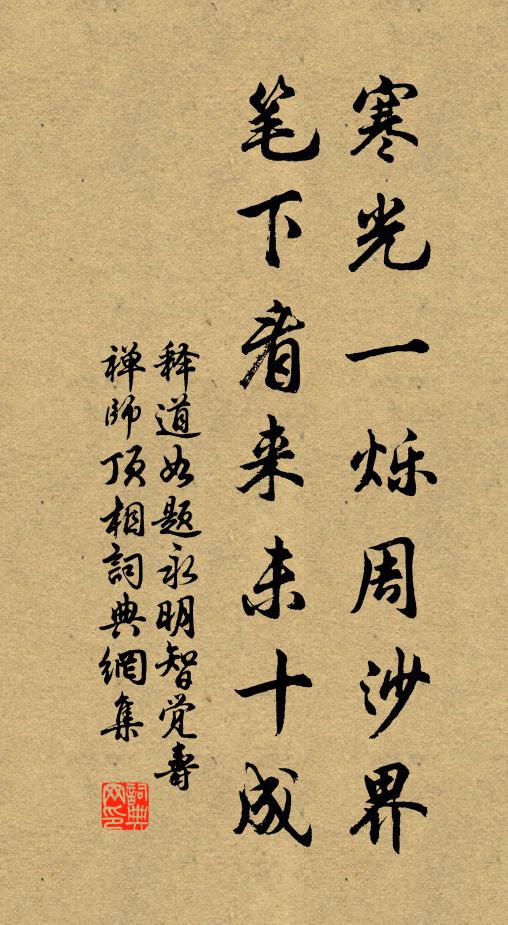 寒光一烁周沙界
笔下看来未十成
释道如题永明智觉寿
禅师顶相詞典網集
詞典网印